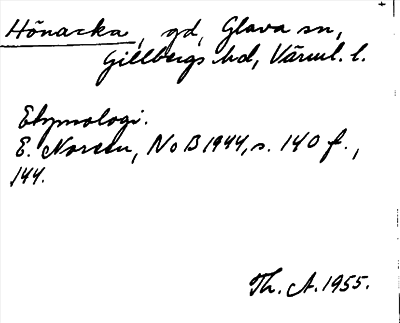 Hönacka, gd, Glava sn,
Gillbergs hd, Värml. l.
Etymologi.
E. Noreen, NoB 1944, s. 140 f.,
144.
Th. A. 1955.